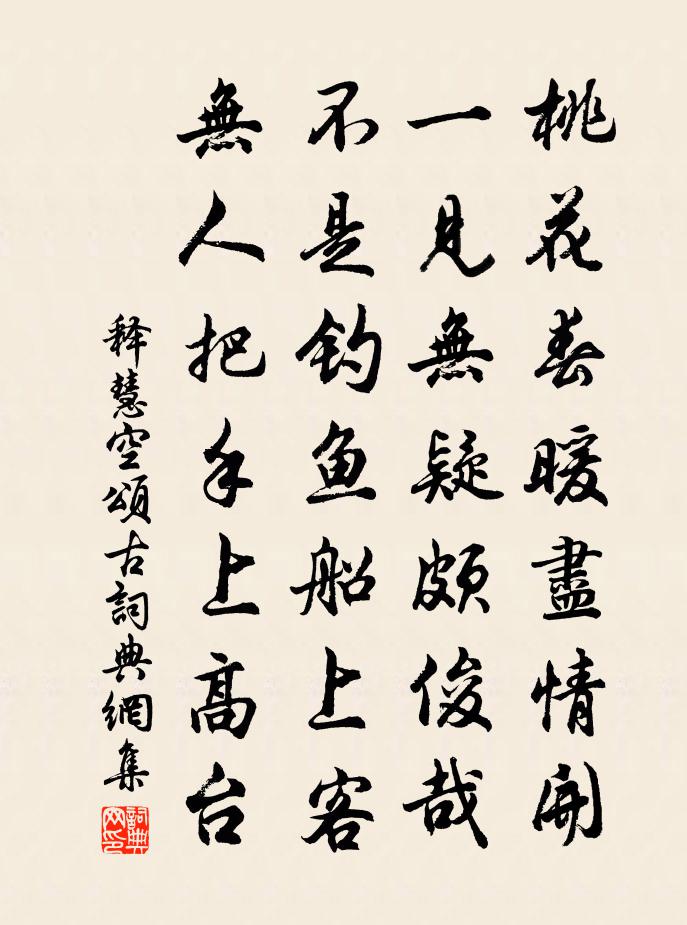 桃花春暖盡情開
一見無疑頗俊哉
不是釣魚船上客
無人把手上高台
释慧空頌古詞典網集
詞典网印